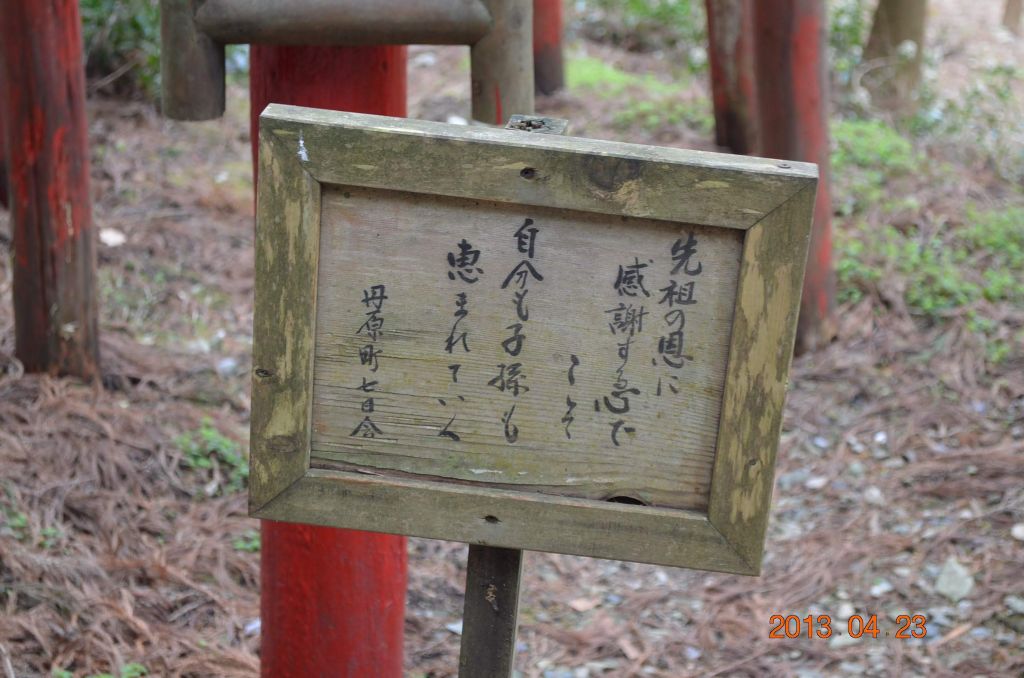 先祖の恩に
感謝する心で
こそ
自分も子孫も
恵まれていく
丹原町七日会
2013 04 23